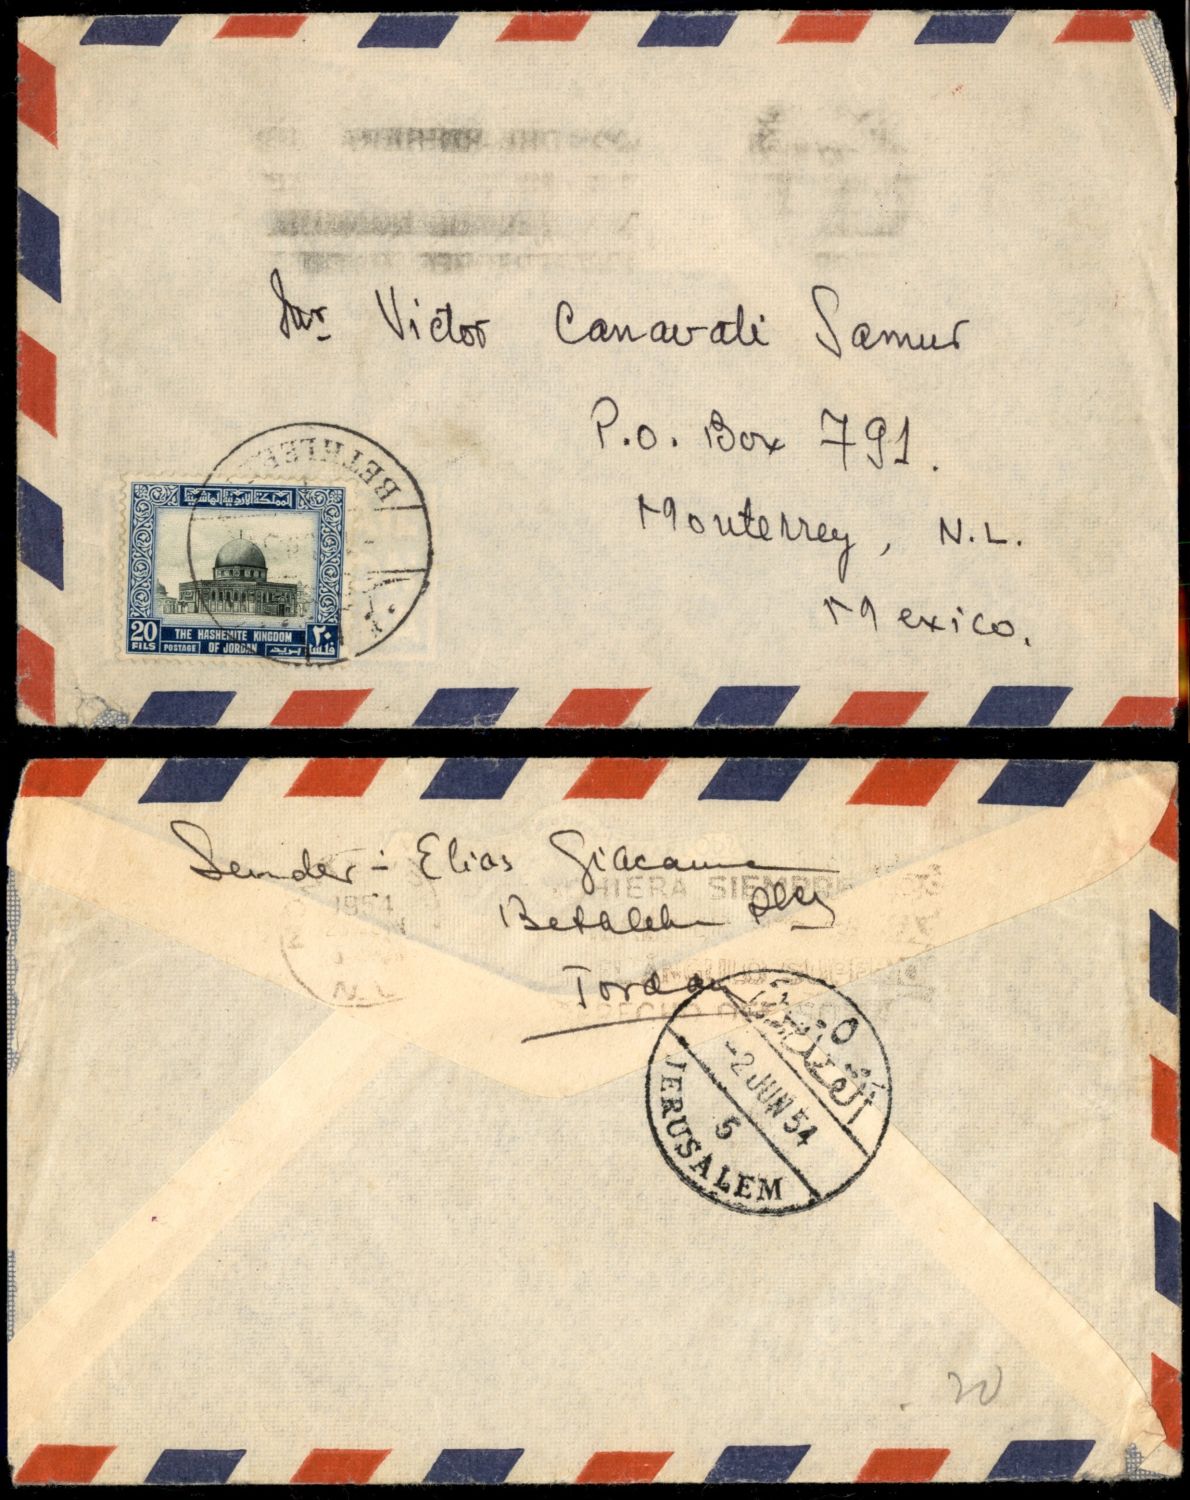 Snr. Victor Canavati Samur
P.O. Box 791.
Monterrey, N.L.
Mexico.
BETHLEHE
المملكة الاردنية الهاشمية
20 FILS
THE HASHEMITE KINGDOM
OF JORDAN
POSTAGE
بريد
٢٠ فلسا
Sender - Elias Giacaman
Bethlehem
Jordan
1954
N.L.
HIERA SIEMPRE
القدس ٥
-2 JUN 54
5
JERUSALEM
20